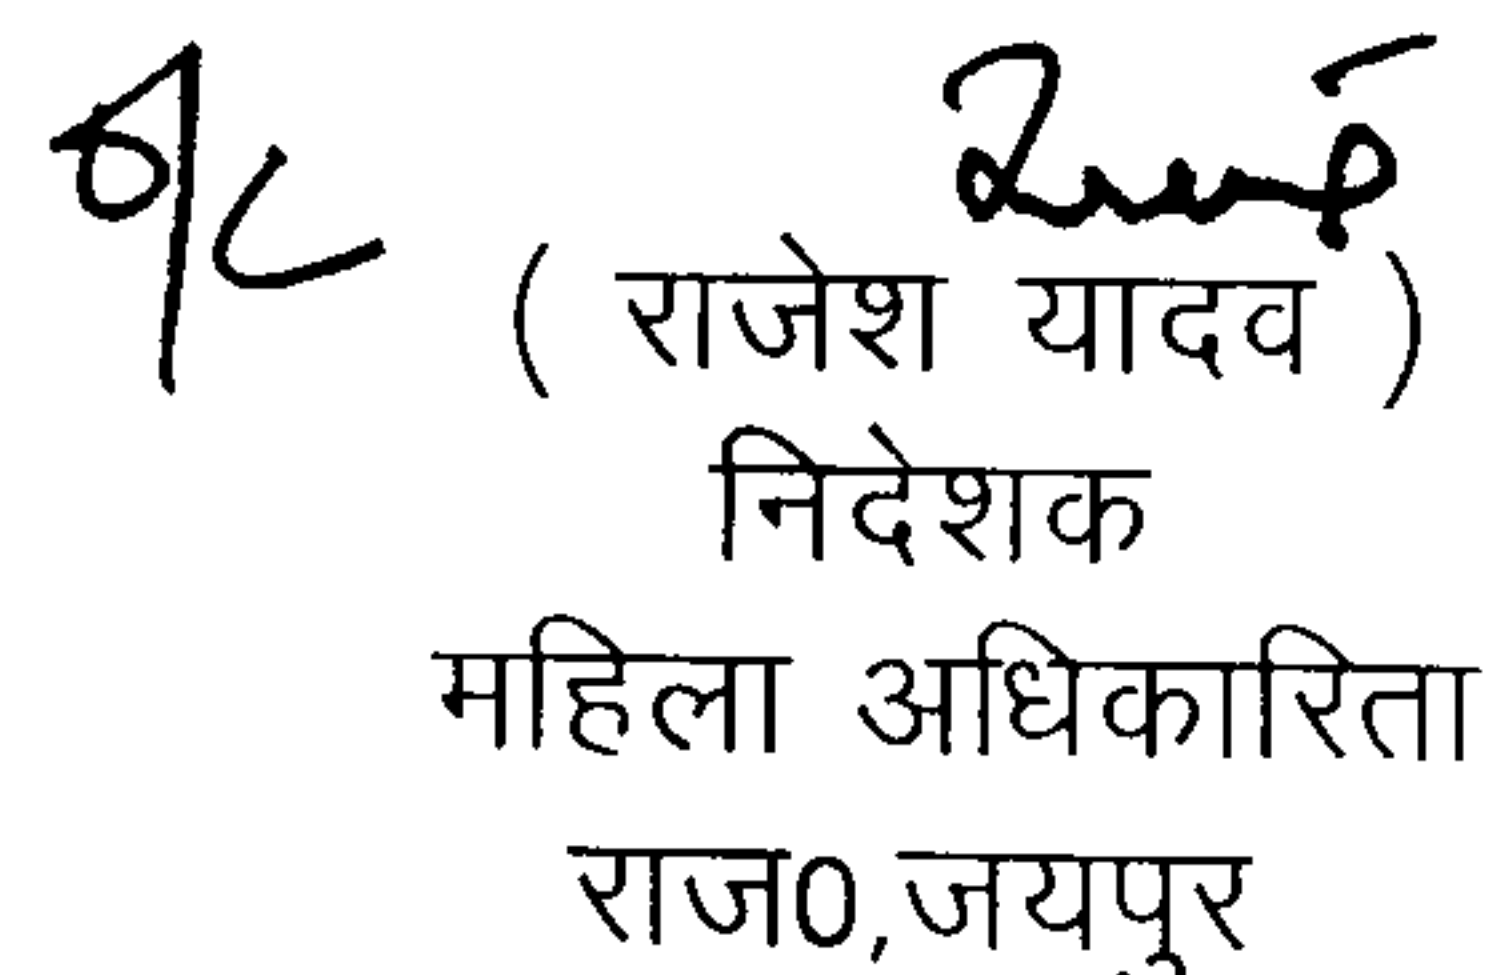 O/C
( राजेश यादव )
निदेशक
महिला अधिकारिता
राज0,जयपुर